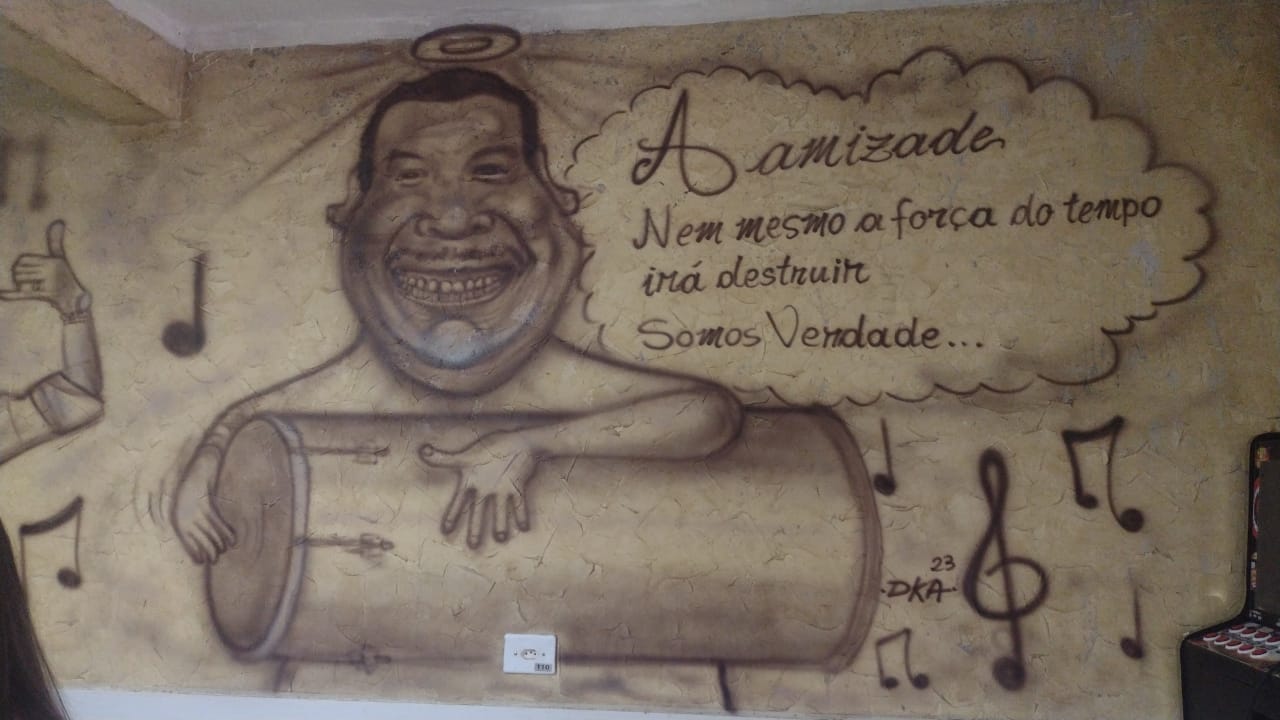 A amizade
Nem mesmo a força do tempo
irá destruir
Somos Verdade...
23
DKA
110